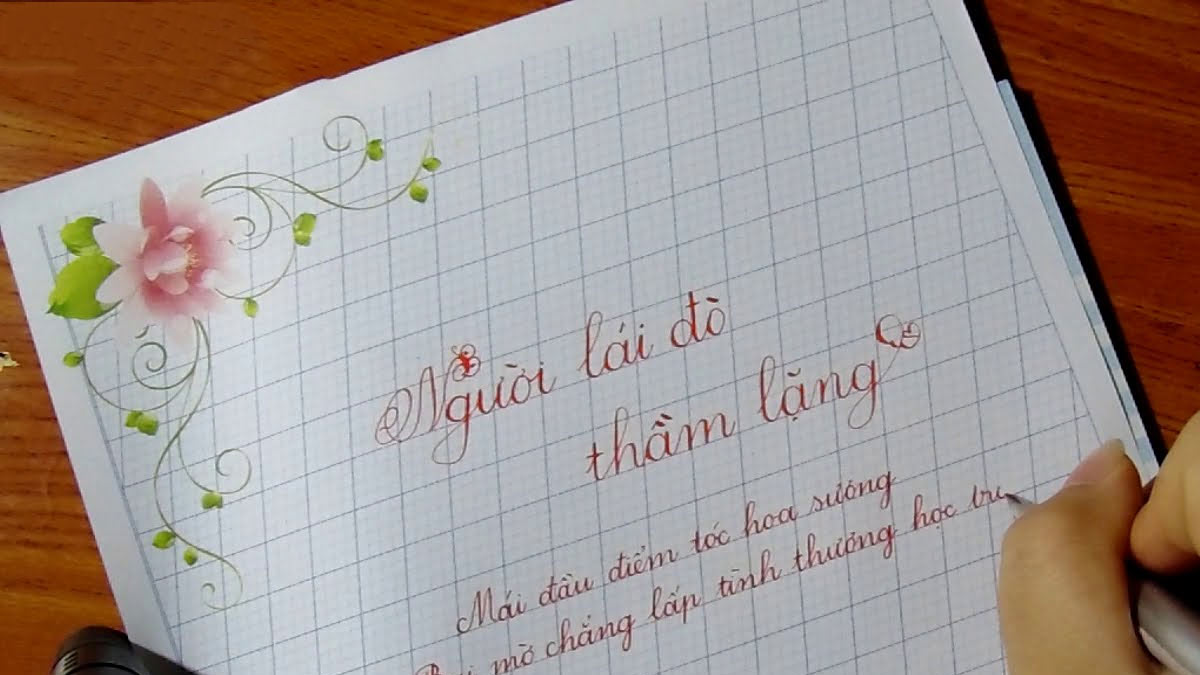 Người lái đò
thầm lặng
Mái đầu điểm tóc hoa sương
mờ chẳng lấp tình thương học